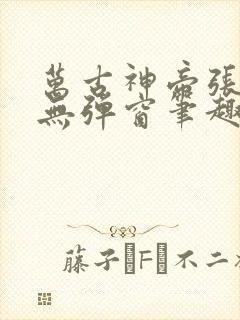 萬古神帝張
無彈窗筆趣
藤子·F·不二